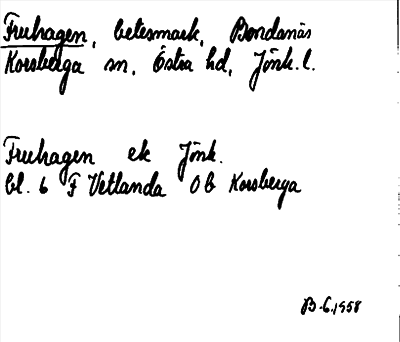 Fruhagen, betesmark, Bondanäs
Korsberga sn, Östra hd, Jönk. l.
Fruhagen ek Jönk.
bl. 6 F Vetlanda Ob Korsberga
B.G.1958